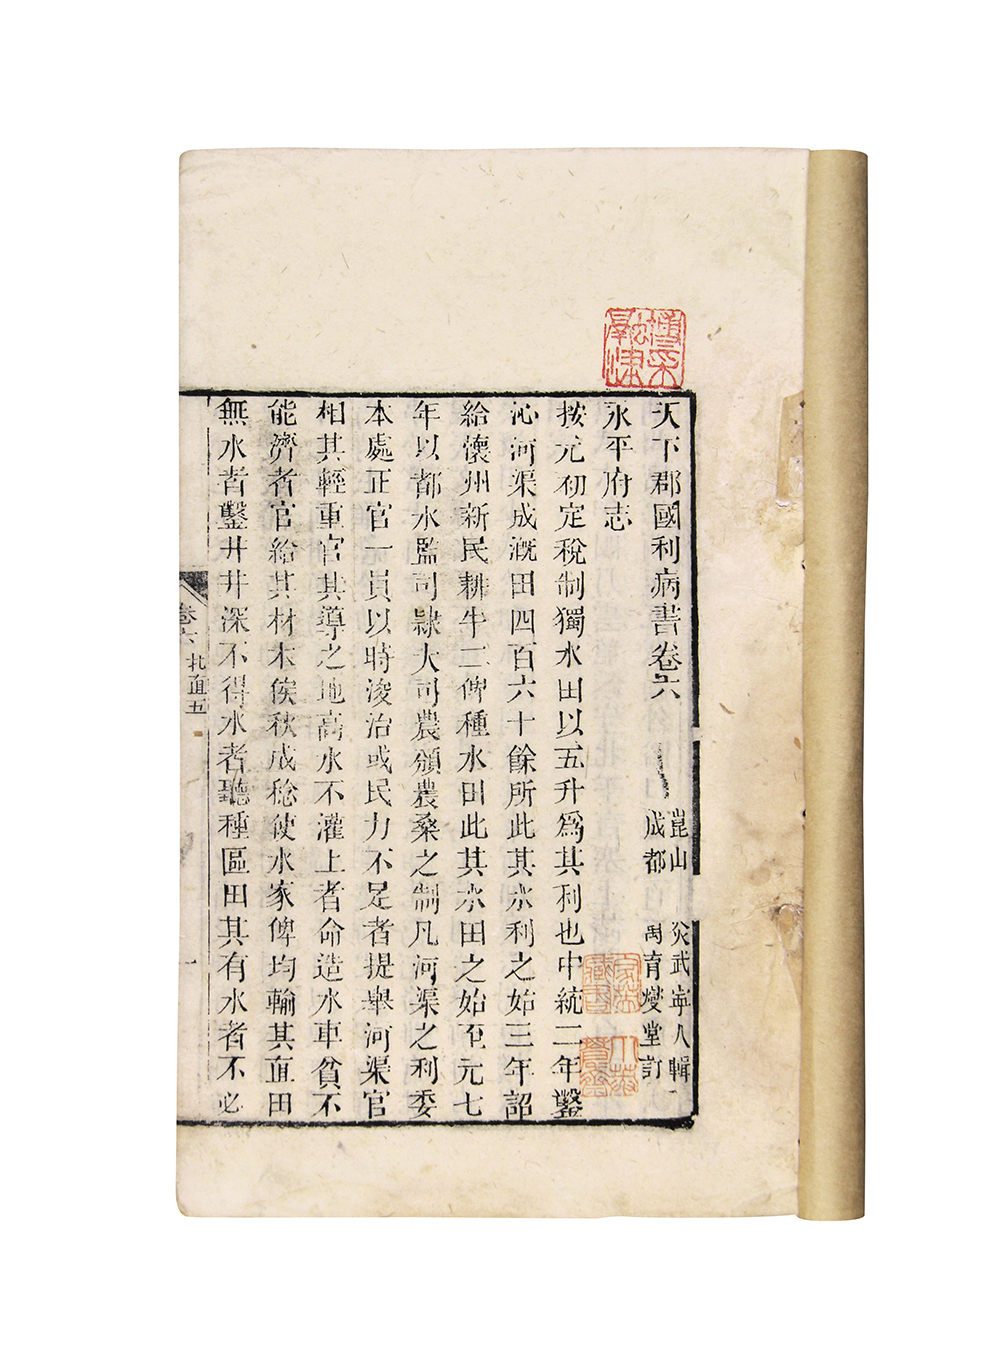 天下郡國利病書卷六
崑山 炎武寧人輯
成都 禹育燮堂訂
永平府志
按元初定稅制獨水田以五升爲其利也中統二年鑿
沁河渠成溉田四百六十餘所此其水利之始三年詔
給懷州新民耕牛二俾種水田此其水田之始至元七
年以都水監司隸大司農頒農桑之制凡河渠之利委
本處正官一員以時浚治或民力不足者提舉河渠官
相其輕重官其導之地高水不灌上者命造水車貧不
能濟者官給其材木俟秋成稔使水家俾均輸其直田
無水者鑿井井深不得水者聽種區田其有水者不必
卷六 北直五
一